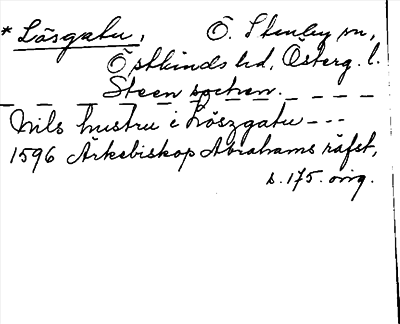 * Lösgatu, Ö. Stenby sn,
Östkinds hd, Österg. l.
Steen socken.
Nils hustru i Löszgatu ---
1596 Ärkebiskop Abrahams räfst,
s. 175. orig.